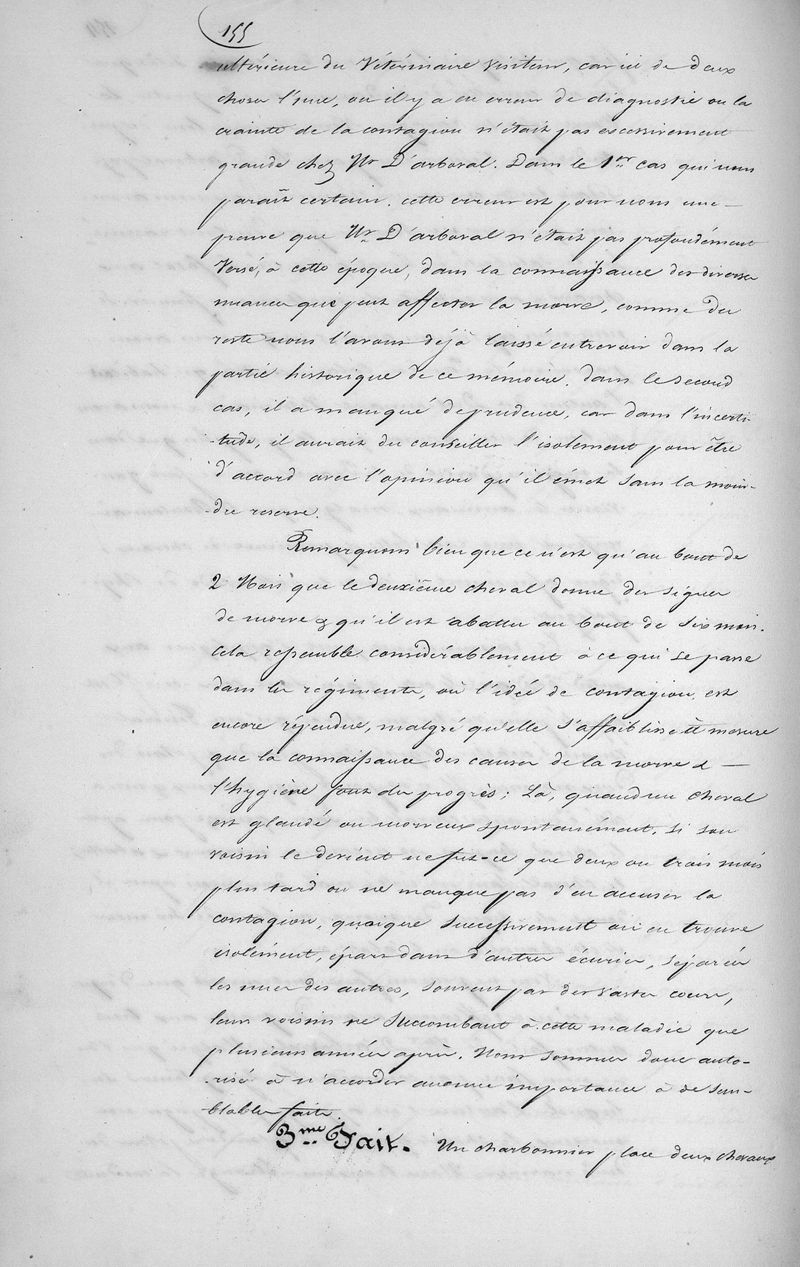 155
ultérieure du Vétérinaire visiteur, car ici de deux
choses l'une, ou il y a eu erreur de diagnostic ou la
crainte de la contagion n'était pas excessivement
grande chez Mr D'arboval. Dans le 1er cas qui nous
paraît certain, cette erreur est pour nous une
preuve que Mr D'arboval n'était pas profondément
versé, à cette époque, dans la connaissance des diverses
nuances que peut affecter la morve, comme du
reste nous l'avons déjà laissé entrevoir dans la
partie historique de ce mémoire. dans le second
cas, il a manqué de prudence, car dans l'incerti-
-tude, il aurait du conseiller l'isolement pour être
d'accord avec l'opinion qu'il émet sans la moin-
-dre reserve.
Remarquons bien que ce n'est qu'au bout de
2 Mois que le deuxième cheval donne des signes
de morve & qu'il est abattu au bout de six mois.
Cela ressemble considérablement à ce qui se passe
dans les régiments, où l'idée de contagion est
encore répendue, malgré qu'elle s'affaiblisse à mesure
que la connaissance des causes de la morve &
l'hygiène font des progrès; Là, quand un cheval
est glandé ou morveux spontanément, si son
voisin le devient ne fut-ce que deux ou trois mois
plus tard on ne manque pas d'en accuser la
contagion, quoique successivement on en trouve
isolément, épars dans d'autres écuries, séparées
les unes des autres, souvent par des vastes cours,
leurs voisins ne succombant à cette maladie que
plusieurs années après. Nous sommes donc auto-
-risé à n'accorder aucune importance à de sem-
-blables faits.
3me Fait. Un charbonnier place deux chevaux